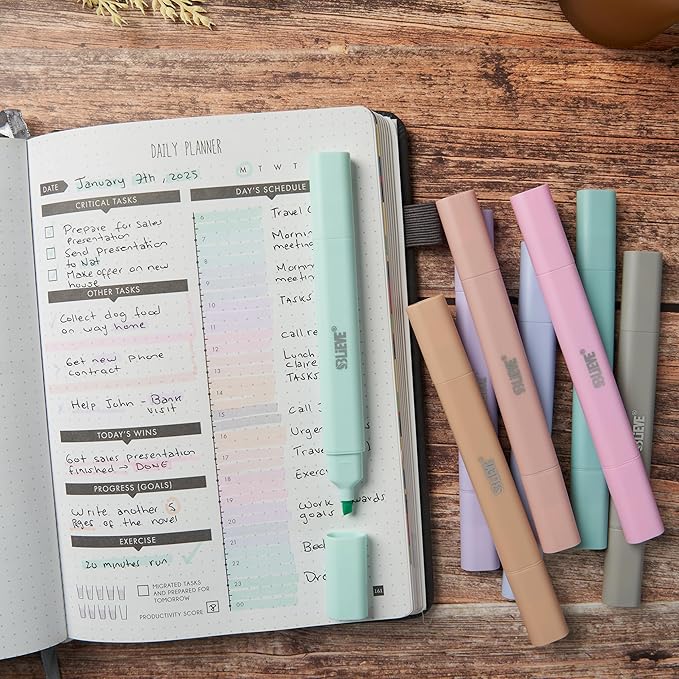 DAILY PLANNER
DATE January 7th, 2025
M T W T
CRITICAL TASKS
Prepare for sales
presentation
Send presentation
to Nat
Make offer on new
house
OTHER TASKS
Collect dog food
on way home
Get new phone
contract
Help John - Bank
visit
TODAY'S WINS
Got sales presentation
finished → DONE
PROGRESS (GOALS)
Write another 5
Pges of the novel
EXERCISE
20 minutes run
MIGRATED TASKS
AND PREPARED FOR
TOMORROW
PRODUCTIVITY SCORE 8
DAY'S SCHEDULE
6
Travel
7
Morning
meeting
8
Morning
meeting
TASKS
Call
Lunch
Claire
TASKS
Call
15
Urgen
16
Travel
17
Exerc
18
19
Work
goals
20
21
22
23
00
161
BLIEVE®
BLIEVE®
BLIEVE®
BLIEVE®
BLIEVE